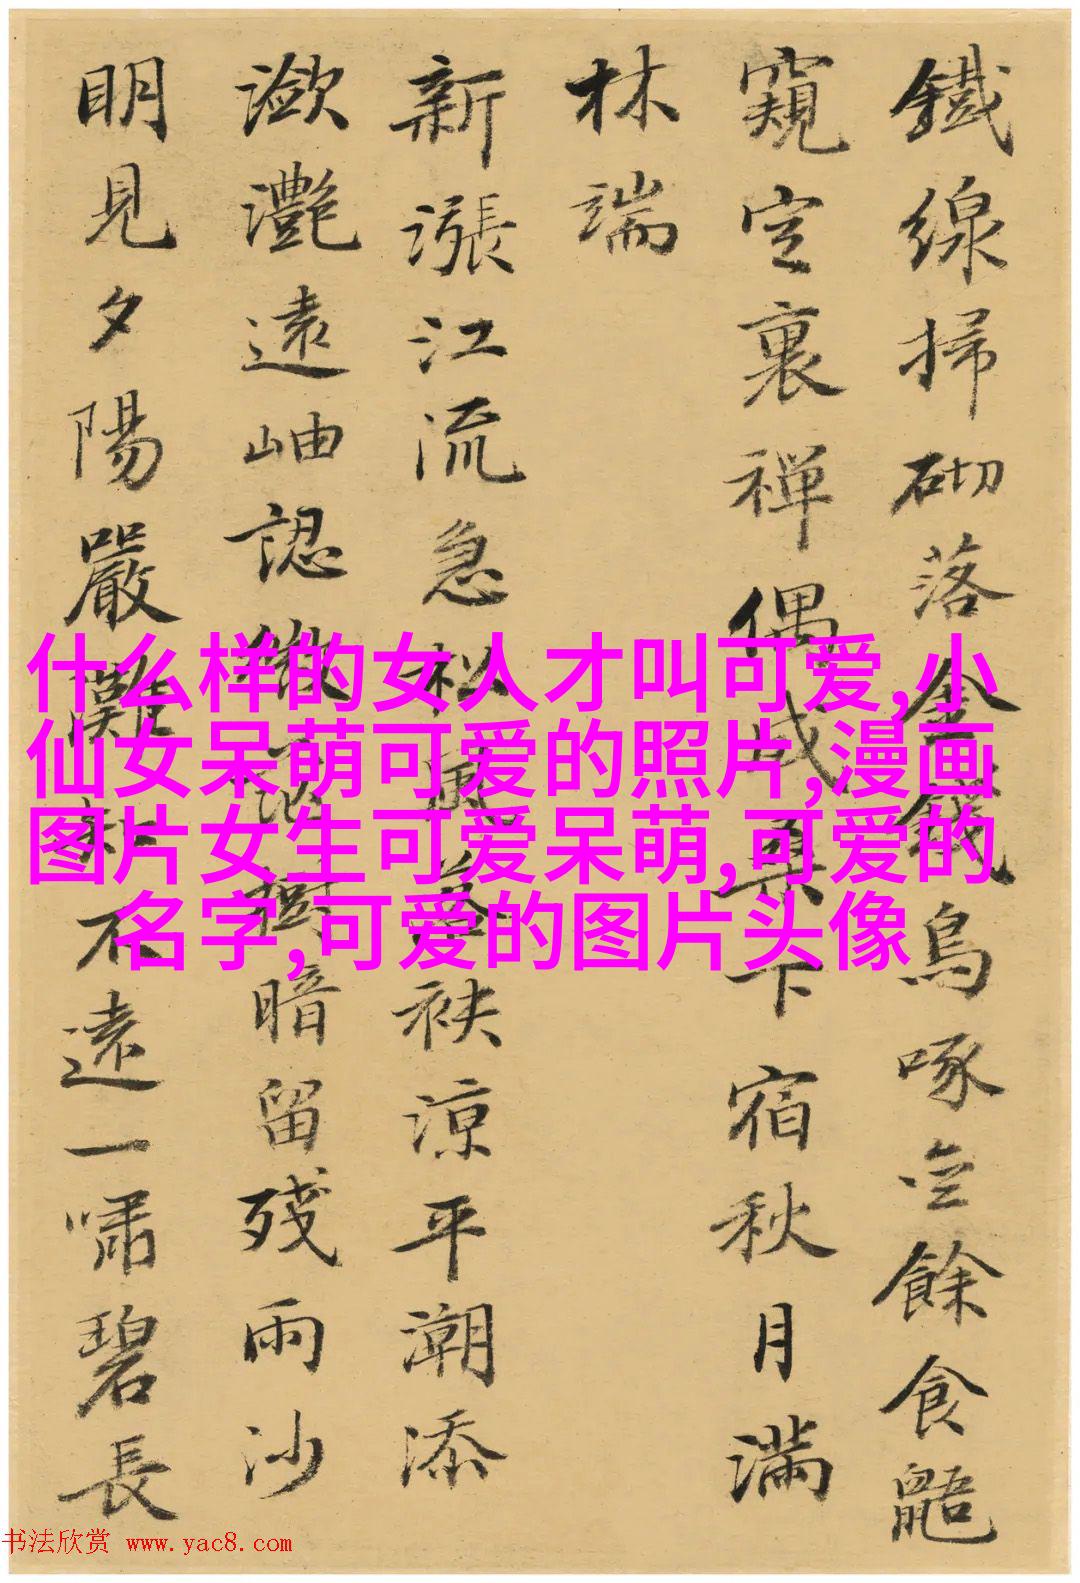 鐵線掃砌落金錢烏啄空餘食鼯
窺定裏禪偶成桑下宿秋月滿
林端
新漲江流急松風暮袂涼平潮添
瀲灩遠岫認微茫樹暗留殘雨沙
明見夕陽嚴灘知不遠一嘯碧長
什么样的女人才叫可爱,小
仙女呆萌可爱的照片,漫画
图片女生可爱呆萌,可爱的
名字,可爱的图片头像
书法欣赏 www.yac8.com